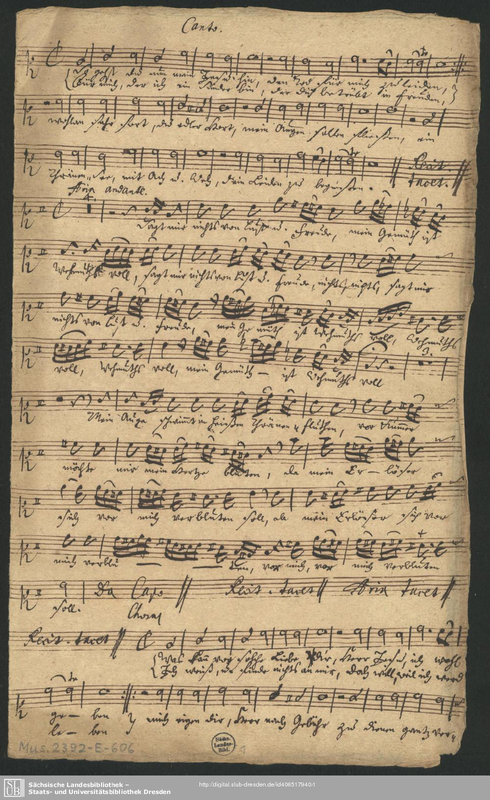 Canto.
du nun mein Jesu hin, den Tod für mich zu leiden,
für mich, der ich ein Sünder bin, der dich betrübt in Freuden,
wohlan fahr fort, du edler Hort, mein Augen sollen fließen, ein
mit Ach u. Weh, dein Leiden zu begießen.
Recit. tacet.
Aria andante.
4.
Sagt mir nichts von Lust u. Freude, mein Gemüth ist
Wehmuths voll, sagt mir nichts von Lust u. Freude, nichts, nichts, sagt mir
nichts von Lust u. Freude, mein Gemüth ist Wehmuths voll, Wehmuths
voll, Wehmuths voll, mein Gemüth ist Wehmuths voll
Mein Auge schwimmt in heißen Thränen Fluthen, vor Kummer
möchte mir mein Hertze bluten, da mein Erlöser
sich vor mich verbluten soll, da mein Erlöser sich vor
mich verblu - - - ten, vor mich, vor mich verbluten
soll. Da Capo Recit. tacet Aria tacet
Choral
Recit. tacet
Was kann vor solche Liebe dir, Herr Jesu, ich wohl
Ich weiß, u. finde nichts an mir, doch will, weil ich werd
ge - ben
le - ben
mich eigen dir, Herr nach Gebühr zu dienen gantz ver-
Mus. 2392-E-606
Sächs.
Landes-
Bibl.
SLUB
Sächsische Landesbibliothek –
Staats- und Universitätsbibliothek Dresden
http://digital.slub-dresden.de/id406517940/1